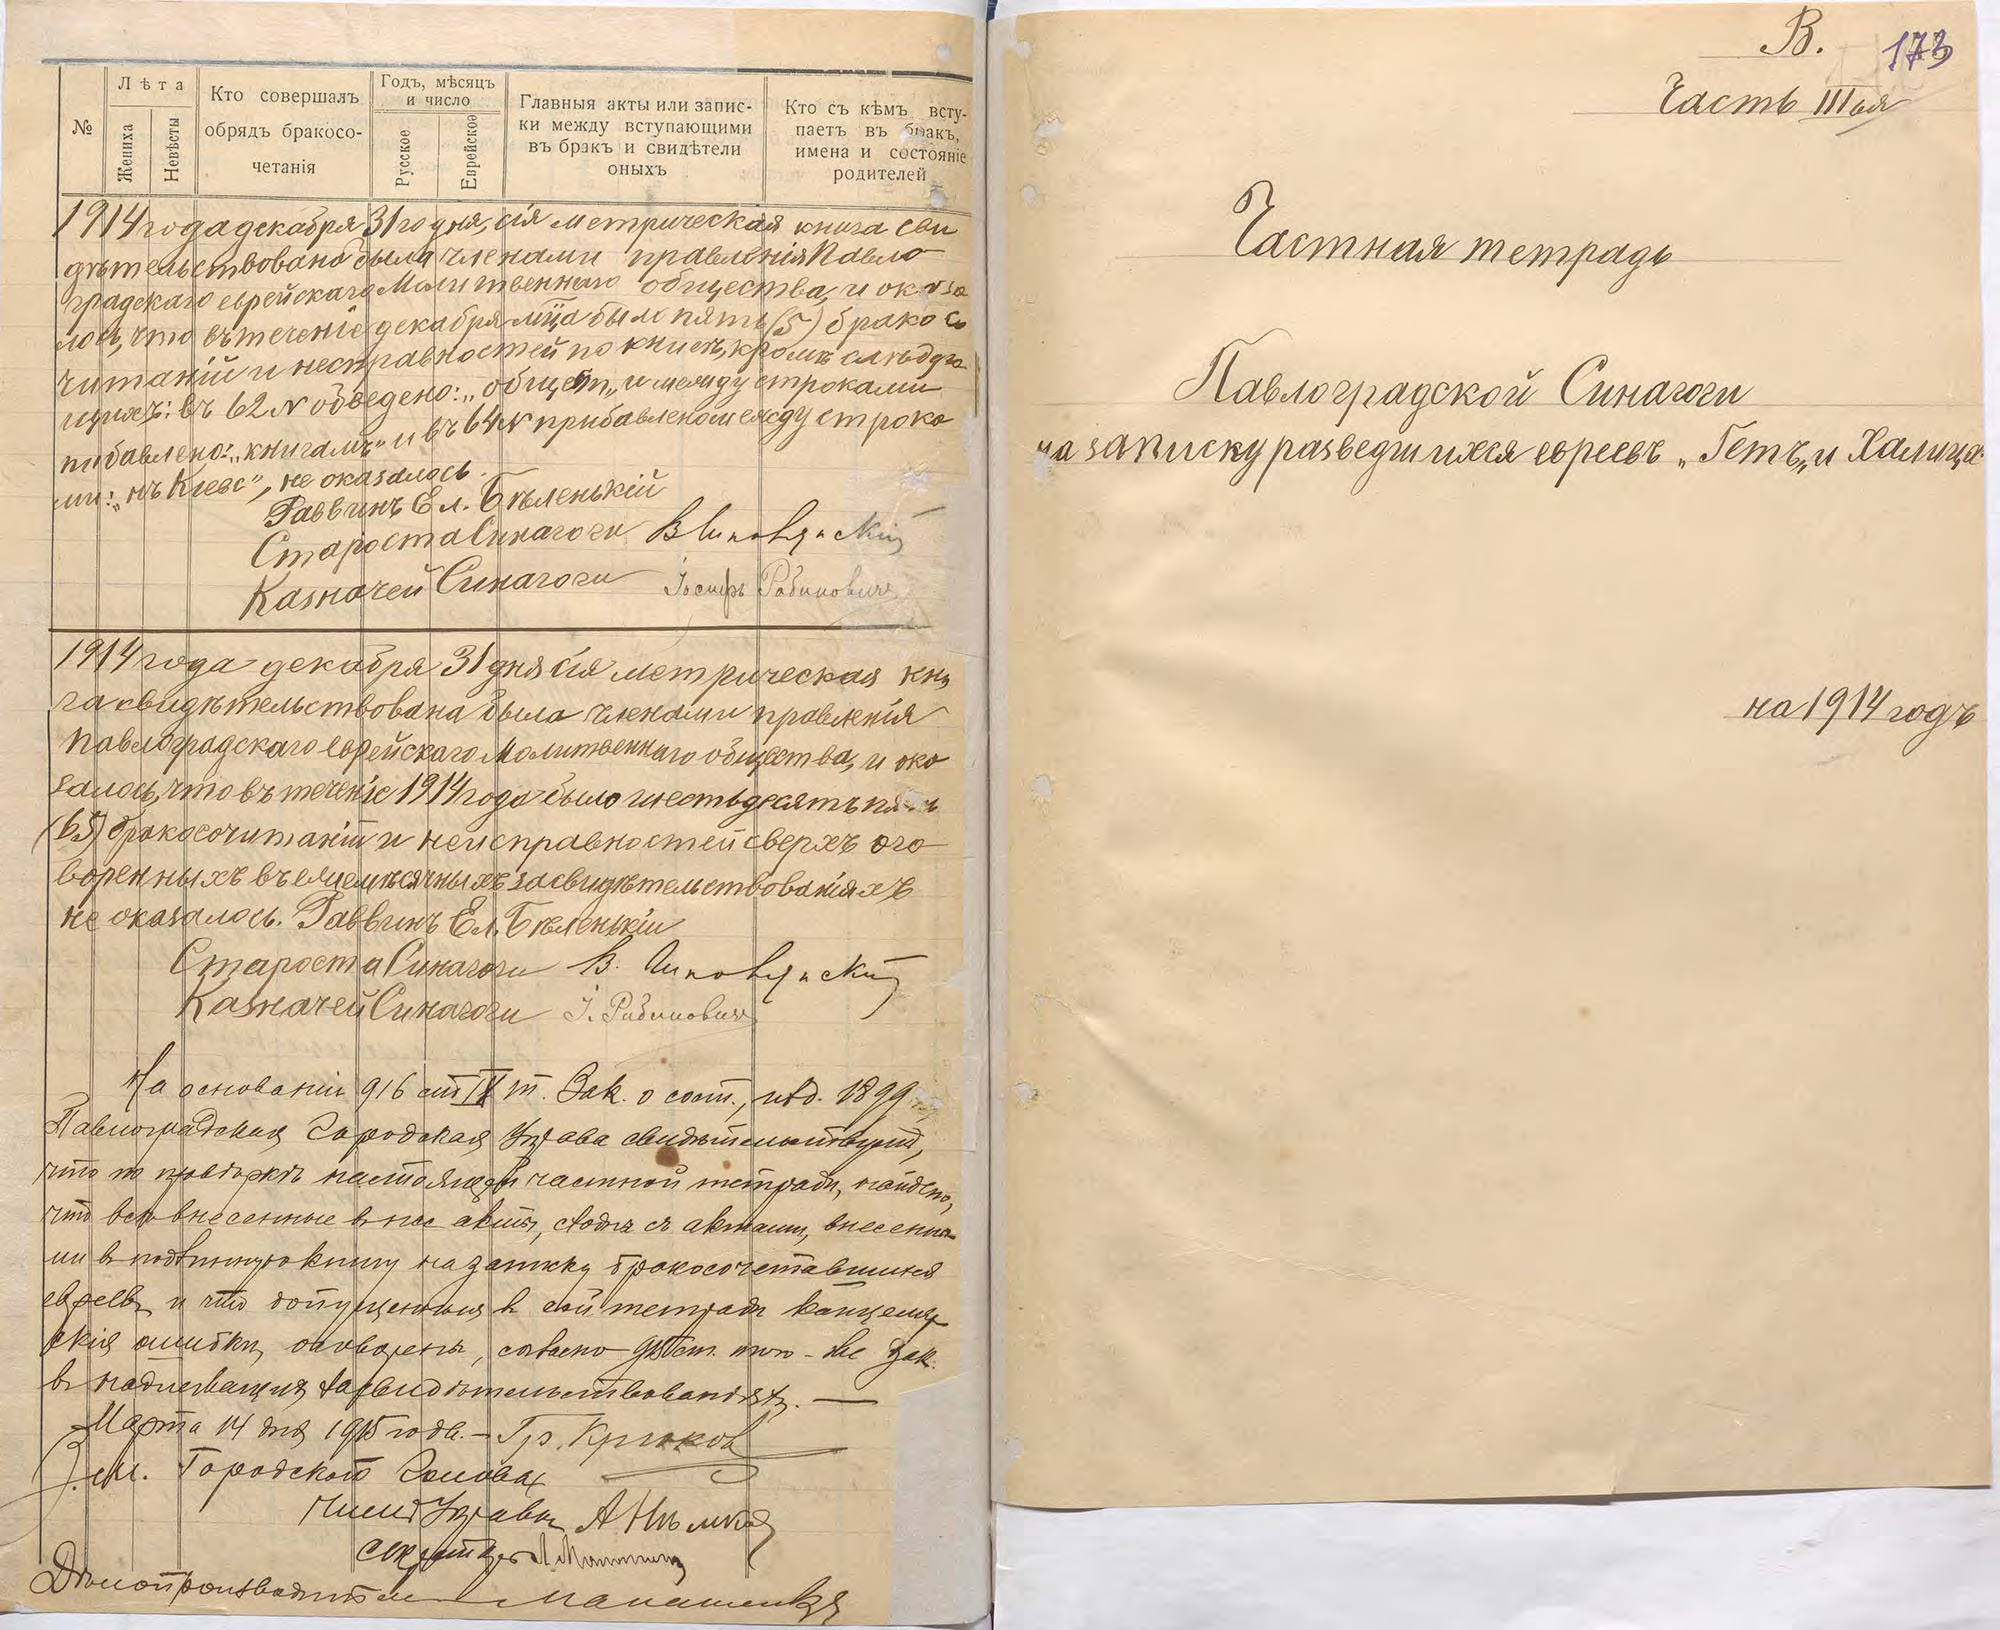 №
Лѣта
Жениха
Невѣсты
Кто совершалъ
обрядъ бракосо-
четанія
Годъ, мѣсяцъ
и число
Русское
Еврейское
Главныя акты или запис-
ки между вступающими
въ бракъ и свидѣтели
оныхъ
Кто съ кѣмъ всту-
паетъ въ бракъ,
имена и состояніе
родителей
1914 года декабря 31го дня, сія метрическая книга сви
дѣтельствовано была членами правленія Павло
градскаго еврейскаго Молитвеннаго общества, и оказа
лось, что въ теченіе декабря м-ца было пять (5) бракосо
читаній и несправностей по книгѣ, кромѣ слѣдую
щихъ: въ 62 N обведено: „общест„ и между строками
прибавлено: „книгамъ" и въ 64 N прибавлено между строка
ми: „нъ Кіевс", не оказалось.
Раввинъ Ел. Бѣленькій
Староста Синагоги
Казначей Синагоги Іосифъ Рабиновичъ
1914 года декабря 31 дня сія метрическая кни
га свидѣтельствована была членами правленія
Павлоградскаго еврейскаго Молитвеннаго общества, и ока
залось, что въ теченіе 1914 года было шестьдесятъ пять
(65) бракосочитаній и неисправностей сверхъ ого
воренныхъ въ ежемѣсячныхъ засвидѣтельствованіяхъ
не оказалось. Раввинъ Ел. Бѣленькій
Староста Синагоги В.
Казначей Синагоги І. Рабиновичъ
На основаніи 916 ст IX т. Зак. о сост., изд. 1899
Павлоградская Городская Управа свидѣтельствуетъ,
что по провѣркѣ настоящей частной тетради, найдено,
что всѣ внесенные в нее акты, сходны съ актами, внесенны
ми в подлинную книгу на записку бракосочетавшихся
евреевъ и что допущенныя в сей тетради канцеляр
скія ошибки, оговорены, согласно 915 ст. того-же зак.
в надлежащихъ засвидѣтельствованіяхъ. —
Марта 14 дня 1915 года. — Гр. Крюков
Зам. Городского Головы
Членъ Управы
Секретарь
Дѣлопроизводитель
В.
173
Часть III ья
Частная тетрадь
Павлоградской Синагоги
на записку разведшихся евреевъ „Гетъ„ и Халица
на 1914 годъ